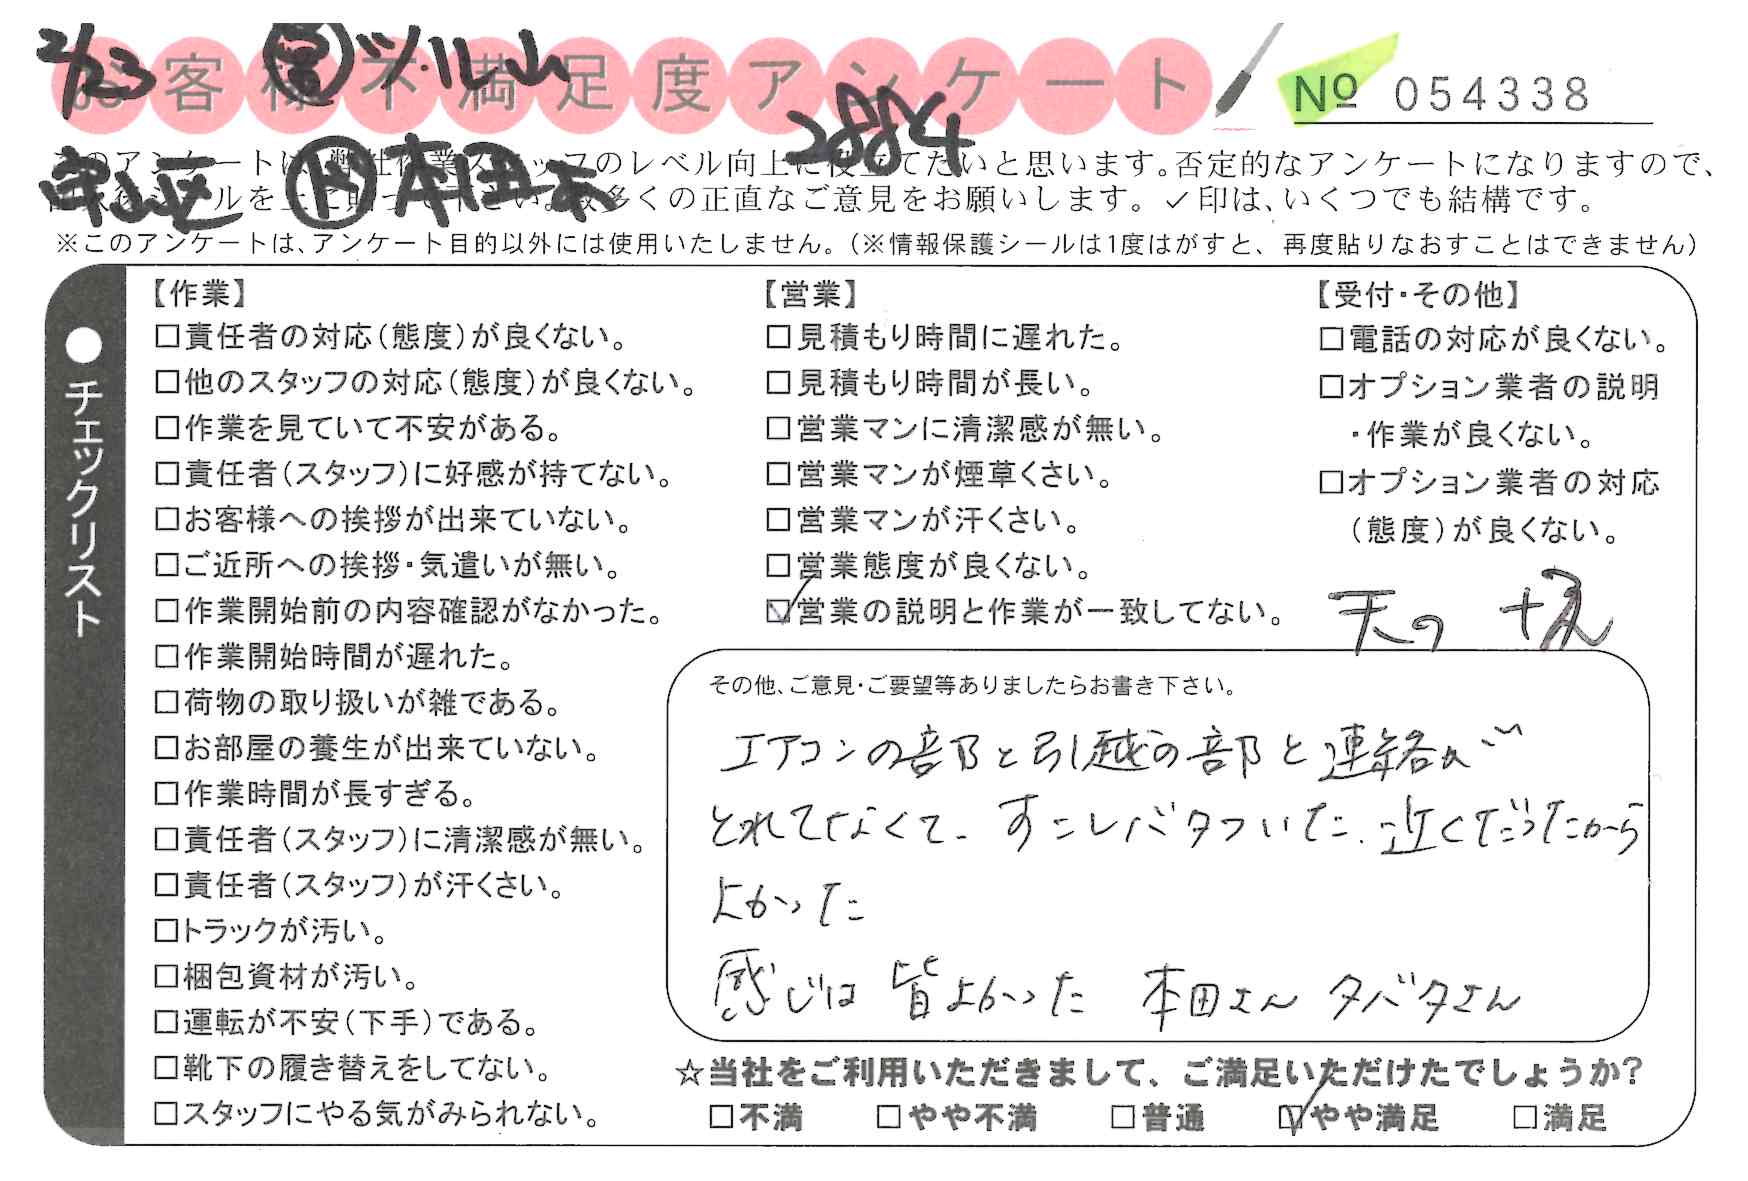 2/23 営 ツル山
お客様不満足度アンケート
2884
№ 054338
守山区 ド 本田
このアンケートは、弊社作業スタッフのレベル向上に役立てたいと思います。否定的なアンケートになりますので、
シールを上に貼って下さい。数多くの正直なご意見をお願いします。✓印は、いくつでも結構です。
※このアンケートは、アンケート目的以外には使用いたしません。(※情報保護シールは1度はがすと、再度貼りなおすことはできません)
●チェックリスト
【作業】
□責任者の対応(態度)が良くない。
□他のスタッフの対応(態度)が良くない。
□作業を見ていて不安がある。
□責任者(スタッフ)に好感が持てない。
□お客様への挨拶が出来ていない。
□ご近所への挨拶・気遣いが無い。
□作業開始前の内容確認がなかった。
□作業開始時間が遅れた。
□荷物の取り扱いが雑である。
□お部屋の養生が出来ていない。
□作業時間が長すぎる。
□責任者(スタッフ)に清潔感が無い。
□責任者(スタッフ)が汗くさい。
□トラックが汚い。
□梱包資材が汚い。
□運転が不安(下手)である。
□靴下の履き替えをしてない。
□スタッフにやる気がみられない。
【営業】
□見積もり時間に遅れた。
□見積もり時間が長い。
□営業マンに清潔感が無い。
□営業マンが煙草くさい。
□営業マンが汗くさい。
□営業態度が良くない。
☑営業の説明と作業が一致してない。
【受付・その他】
□電話の対応が良くない。
□オプション業者の説明
・作業が良くない。
□オプション業者の対応
(態度)が良くない。
その他、ご意見・ご要望等ありましたらお書き下さい。
エアコンの部と引越の部と連絡が
とれてなくて、すこしバタついた。近くだったから
よかった
感じは皆よかった 本田さん タバタさん
☆当社をご利用いただきまして、ご満足いただけたでしょうか?
□不満 □やや不満 □普通 ☑やや満足 □満足